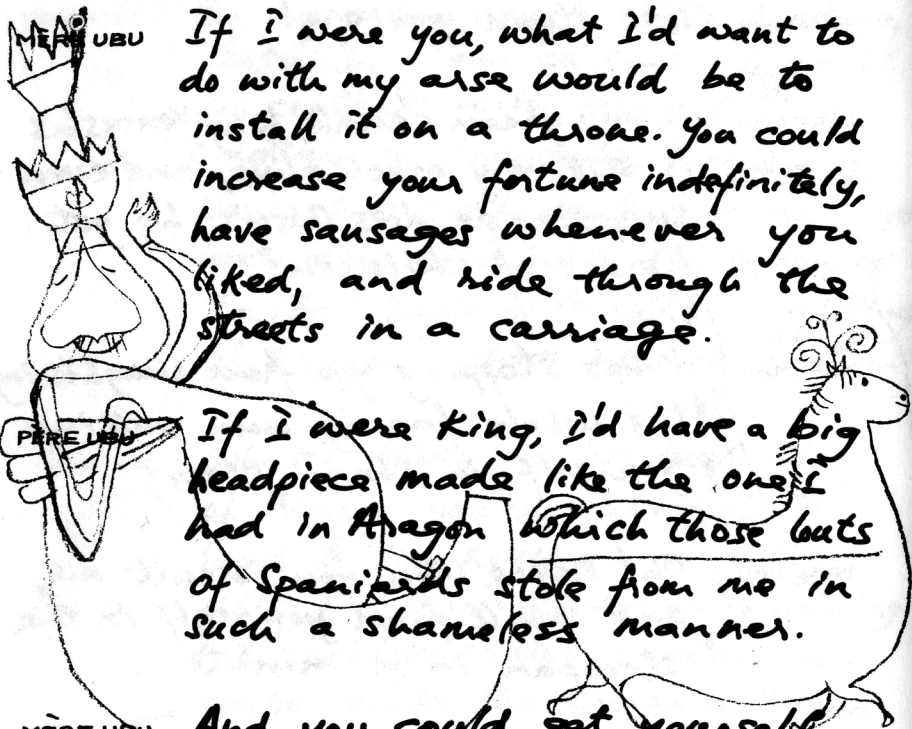 MÈRE UBU If I were you, what I'd want to
do with my arse would be to
install it on a throne. You could
increase your fortune indefinitely,
have sausages whenever you
liked, and ride through the
streets in a carriage.
PÈRE UBU If I were King, I'd have a big
headpiece made like the one I
had in Aragon which those louts
of Spaniards stole from me in
such a shameless manner.
MÈRE UBU And you could get yourself